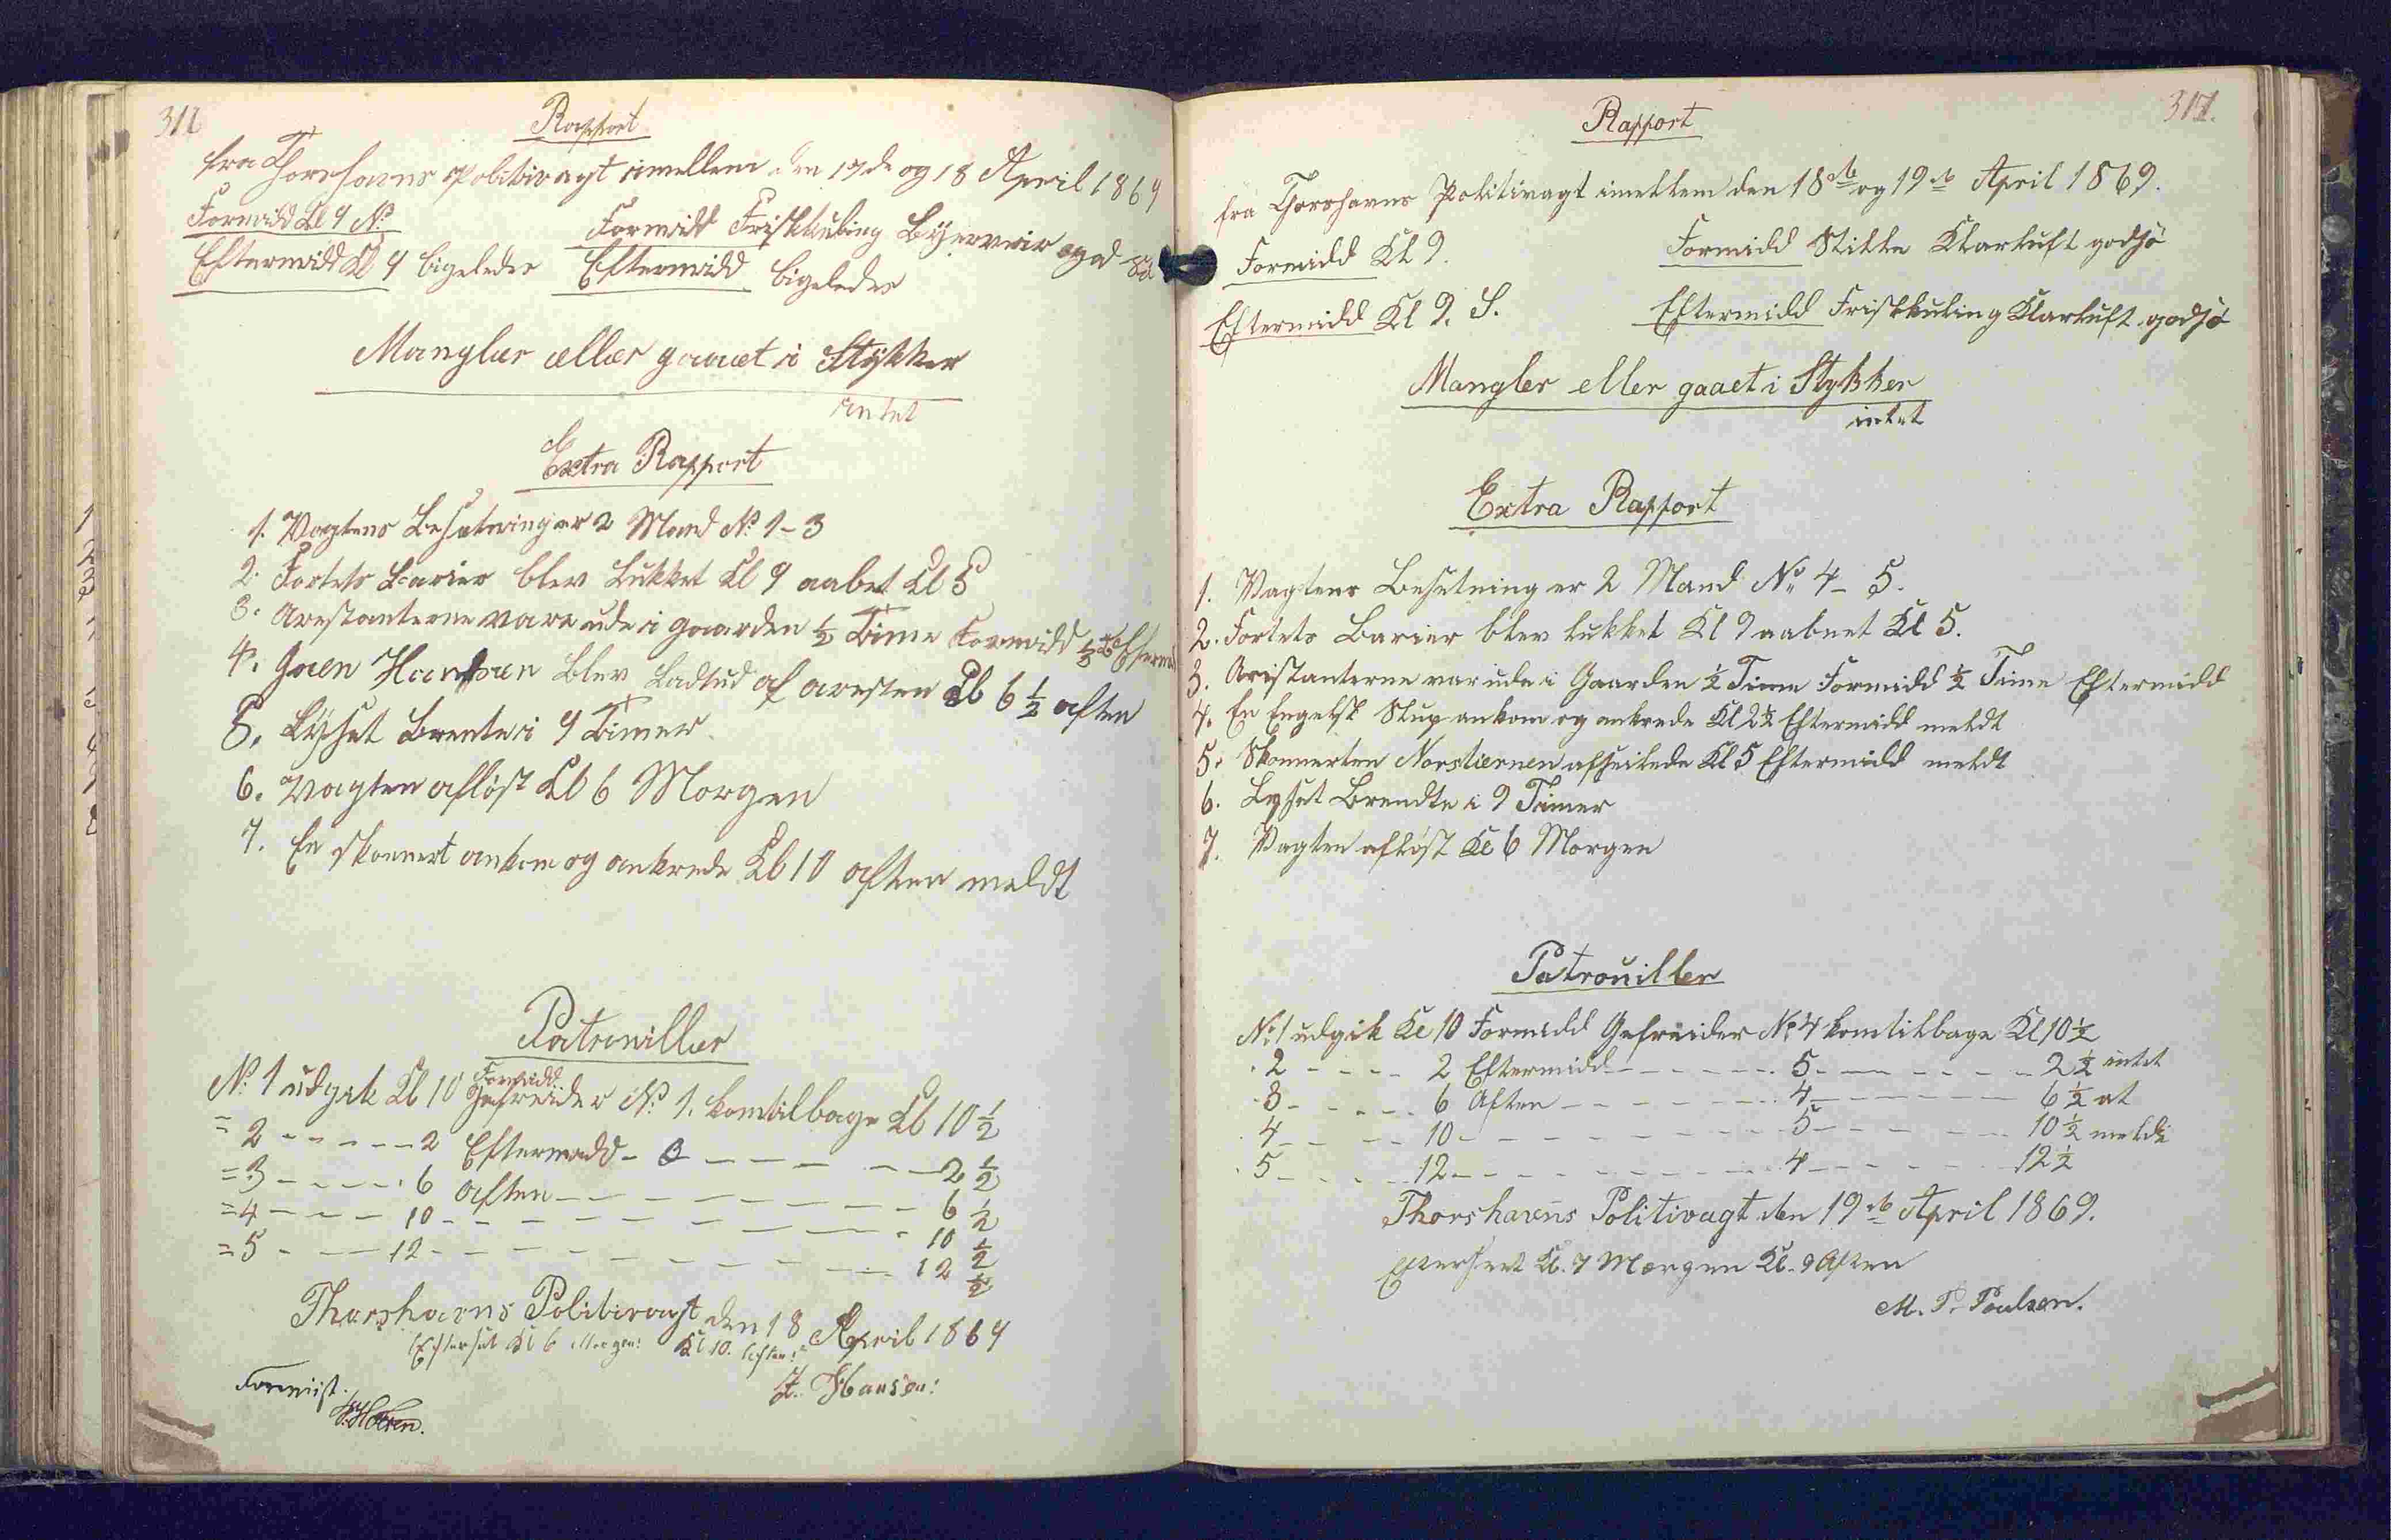 316
Rapport
fra Thorshavns Politivagt imellem den 17de og 18 April 1869
Formidd Kl 9 N.
Formidd Friskkuling Byerveir god Sö
Eftermidd Kl 9 ligeledes
Eftermidd ligeledes
Mangler eller gaaet i Stykker
intet
Extra Rapport
1. Vagtens Besetning er 2 Mand No 1-3
2. Fortets Barier blev Lukket Kl 9 aabet Kl 5
3. Arestanterne vare ude i gaarden 1/2 Time Formidd 1/2 T Efterm
4. Joen Hansen blev Ladtud af aresten Kl 6 1/2 aften
5. Lyset Brente i 9 Timer
6. Vagten aflöst Kl 6 Morgen
7. En skonnert ankom og ankrede Kl 10 aften meldt
Patrouiller
Formidd
No 1 udgik Kl 10 Gefreider No 1. komtilbage Kl 10 1/2
= 2 - - - - - 2 Eftermidd - 3 - - - - - 2 1/2
= 3 - - - - 6 aften - - - - - - - 6 1/2
= 4 - - - 10 - - - - - - - - - 10 1/2
= 5 - - - 12 - - - - - - - - - 12 1/2
Thorshavns Politivagt den 18 April 1869
Efterset Kl 6 Morgen: Kl 10. Aften:
J. Hansen:
Formiist.
317.
Rapport
fra Thorshavns Politivagt imellem den 18de og 19de April 1869.
Formidd Kl 9.
Formidd Stille Klarluft godsö
Eftermidd Kl 9. S.
Eftermidd Friskkuling Klarluft godsö
Mangler eller gaaet i Stykker
intet
Extra Rapport
1. Vagtens Besetning er 2 Mand No 4 - 5.
2. Fortets Barier blev lukket Kl 9 aabnet Kl 5.
3. Aristanterne var ude i Gaarden 1/2 Time Formidd 1/2 Time Eftermidd
4. En Engelsk Slup ankom og ankrede Kl 2 1/2 Eftermidd meldt
5. Skonnerten Norstiernen afseilede Kl 5 Eftermidd meldt
6. Lyset Brendte i 9 Timer
7. Vagten aflöst Kl 6 Morgen
Patrouiller
No 1 udgik Kl 10 Formidd Gefreider No 4 komtilbage Kl 10 1/2
. 2 - - - - 2 Eftermidd - - - - - 5 - - - - - 2 1/2 intet
. 3 - - - - 6 Aften - - - - - - 4 - - - - - 6 1/2 at
. 4 - - - - 10 - - - - - - - 5 - - - - - 10 1/2 melde
. 5 - - - - 12 - - - - - - - 4 - - - - - 12 1/2
Thorshavns Politivagt den 19de April 1869.
Efterseet Kl. 7 Morgen Kl. 9 Aften
M. P. Poulsen.